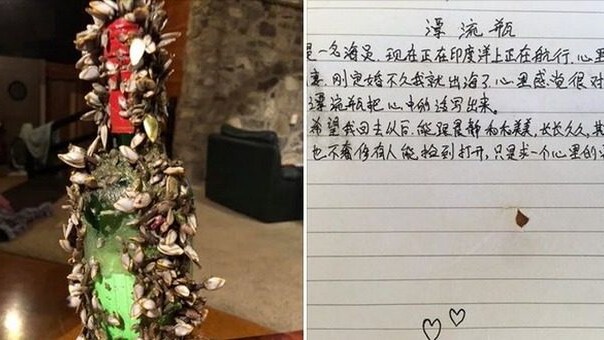 漂流瓶
是一名海员,现在正在印度洋上正在航行,心里
妻,刚完婚不久我就出海了,心里感觉很对
漂流瓶把心中的话写出来。
希望我回去以后,能跟晨静和和美美,长长久久,其
也不奢侈有人能捡到打开,只是求一个心里的